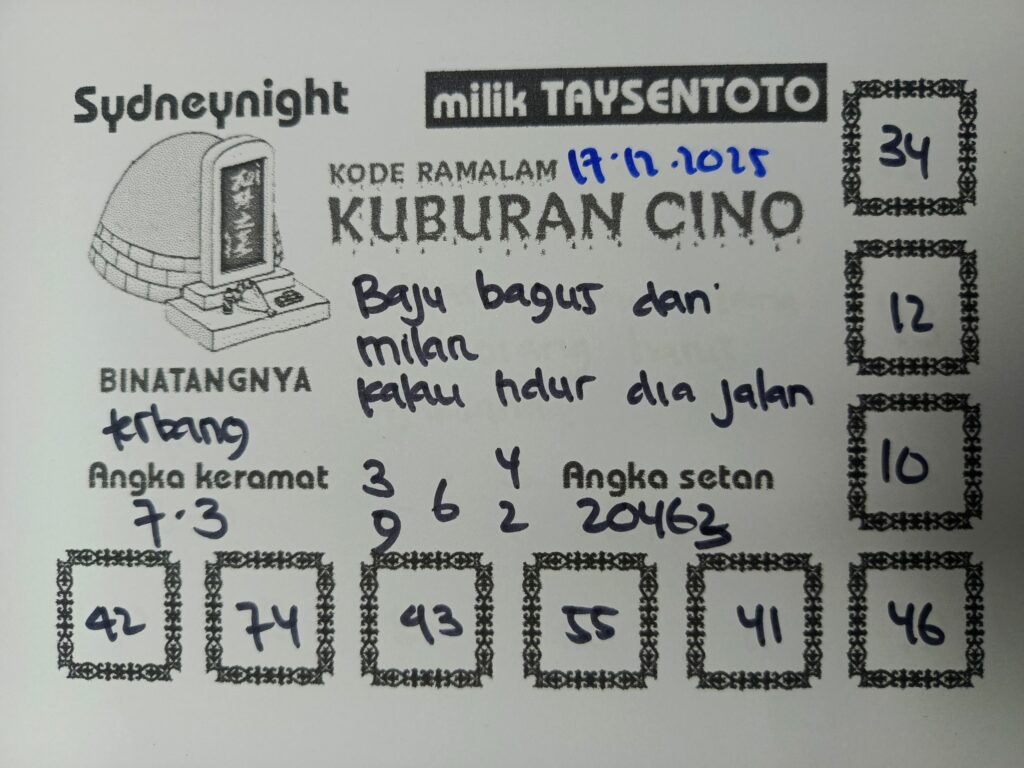 Sydneynight
milik TAYSENTOTO
KODE RAMALAM 17.12.2025
KUBURAN CINO
Baju bagus dan
milan
kalau tidur dia jalan
BINATANGNYA
terbang
Angka keramat
7.3
3 4
6
9 2
Angka setan
20463
34
12
10
42 74 43 55 41 46